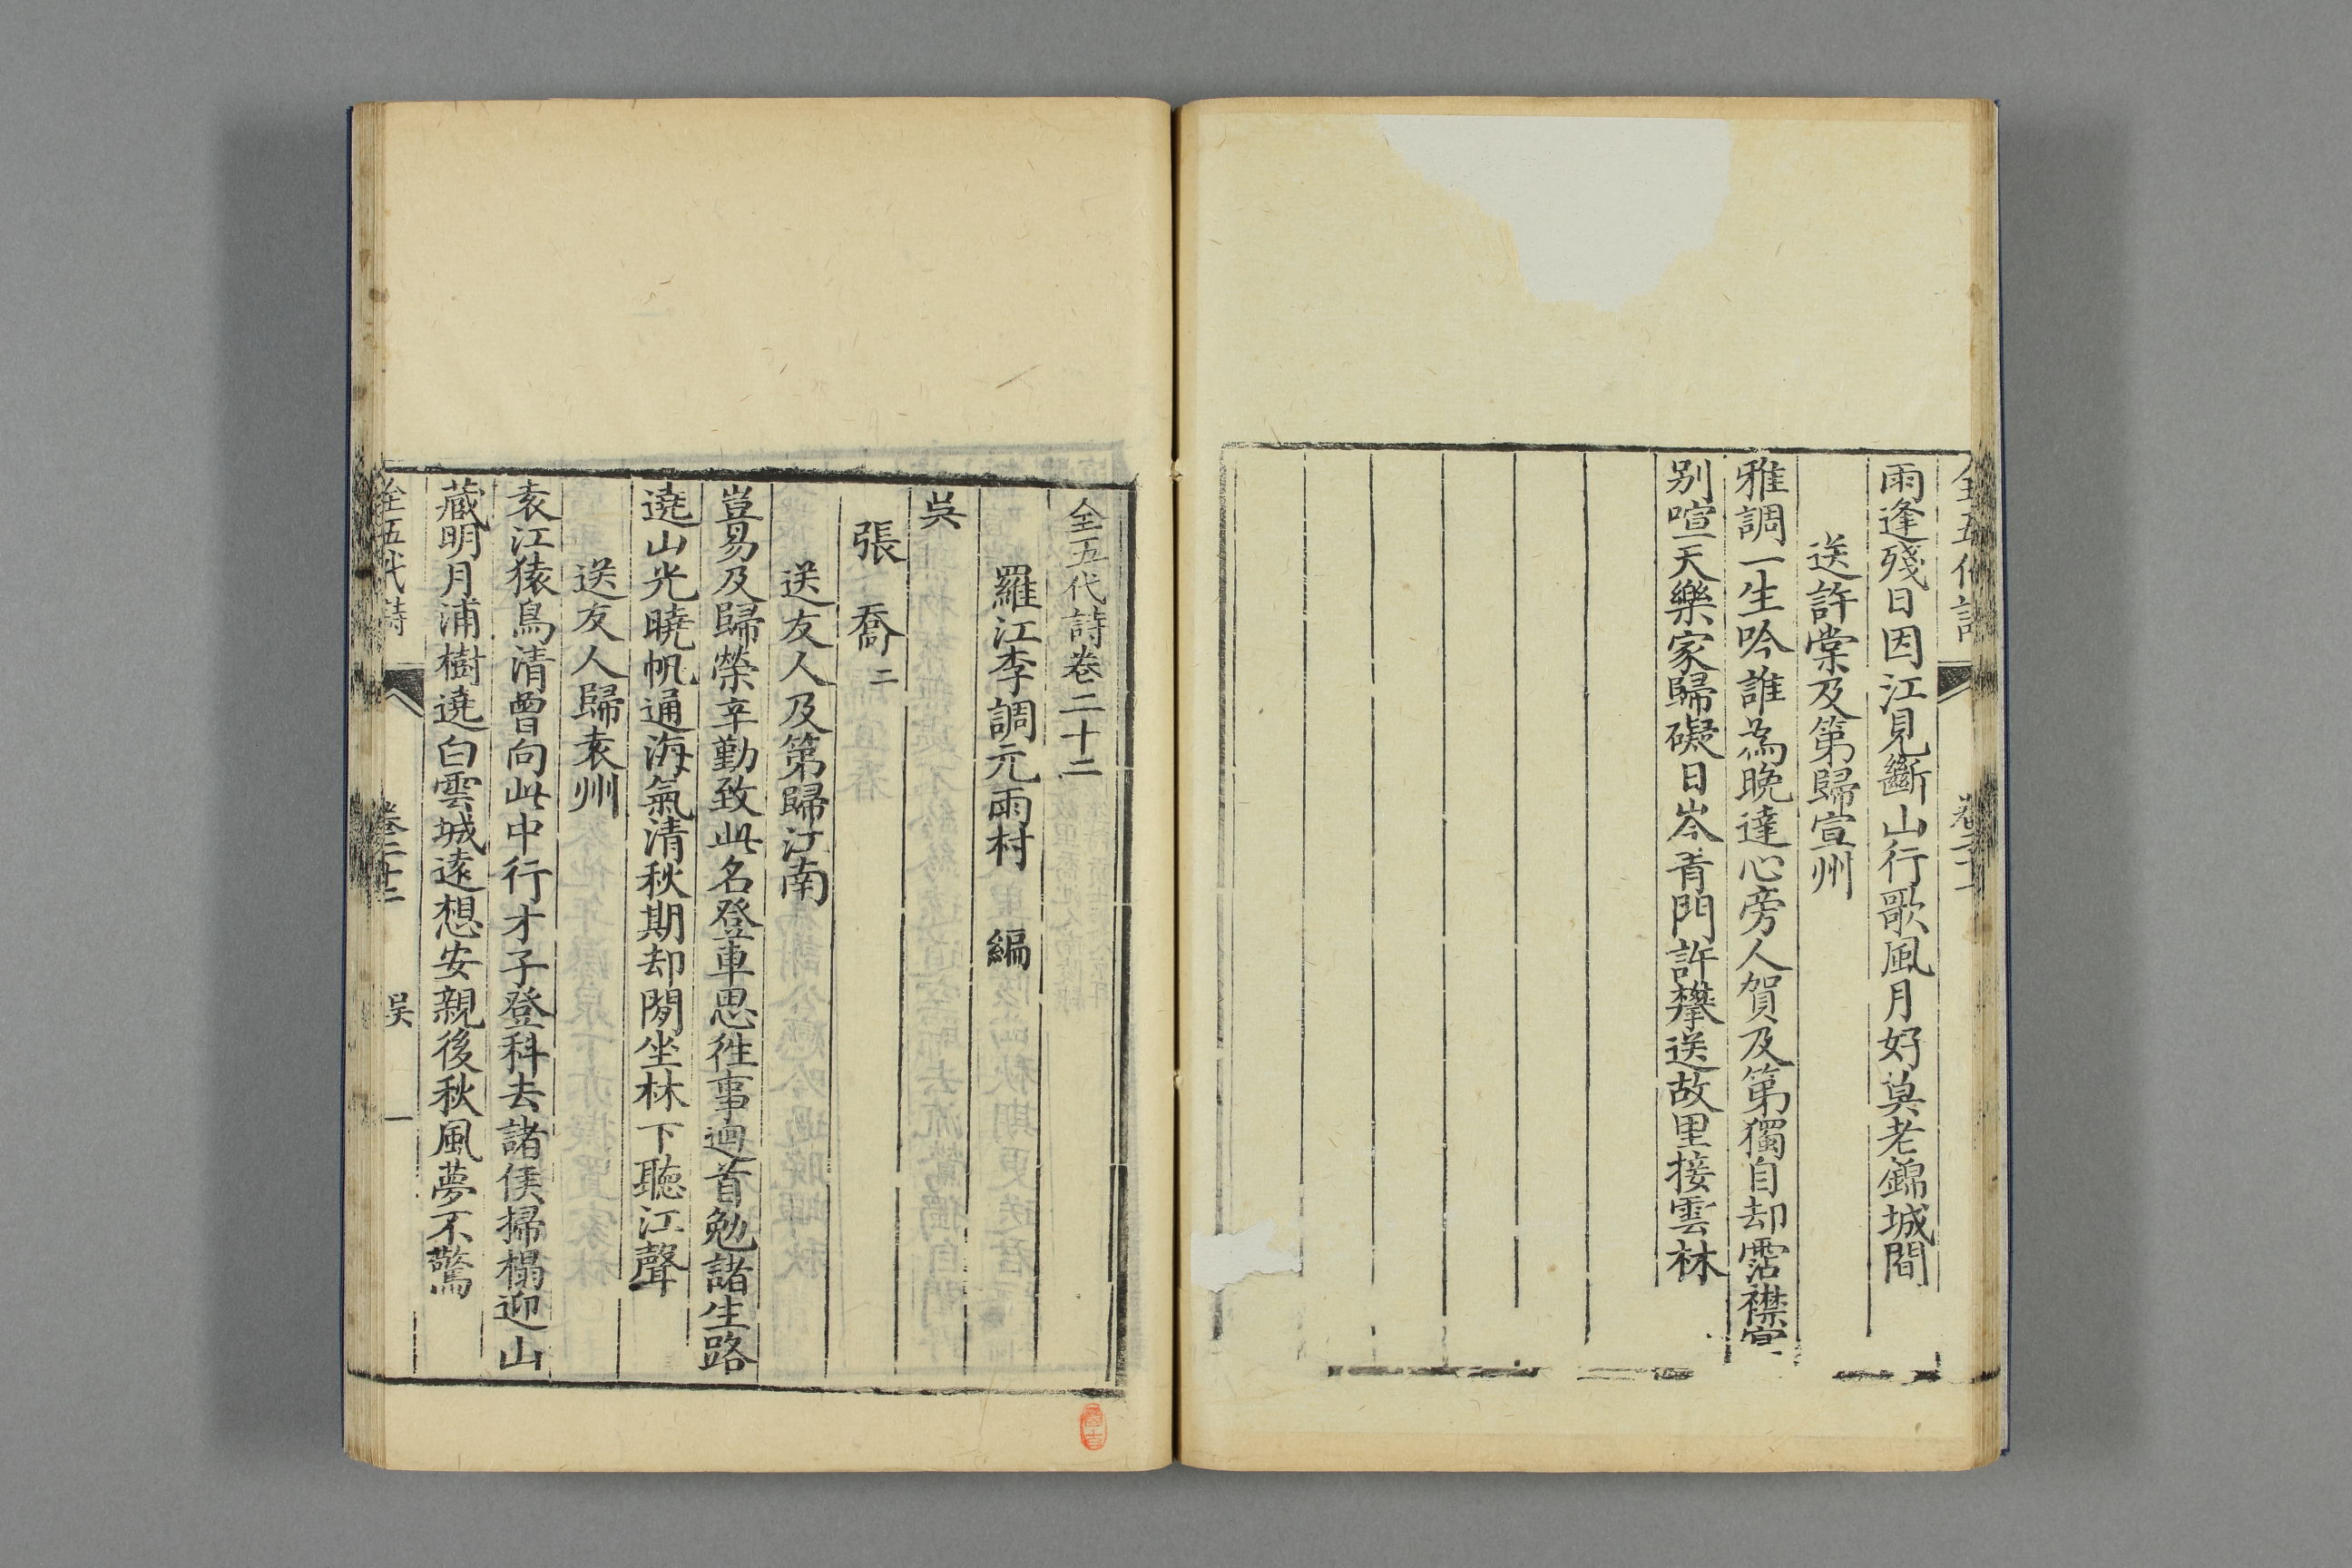 雨逢殘日因江見斷山行歌風月好莫老錦城間
送許棠及第歸宣州
雅調一生吟誰為晚達心旁人賀及第獨自却霑襟宴
別喧天樂家歸礙日岑青門許攀送故里接雲林
全五代詩卷二十二
羅江李調元雨村 編
吳
張 喬二
送友人及第歸江南
豈易及歸榮辛勤致此名登車思徃事迴首勉諸生路
遶山光曉帆通海氣清秋期却閒坐林下聽江聲
送友人歸袁州
袁江猿鳥清曾向此中行才子登科去諸侯掃榻迎山
藏明月浦樹遶白雲城遠想安親後秋風夢不驚
全五代詩 卷二十二 吳 一